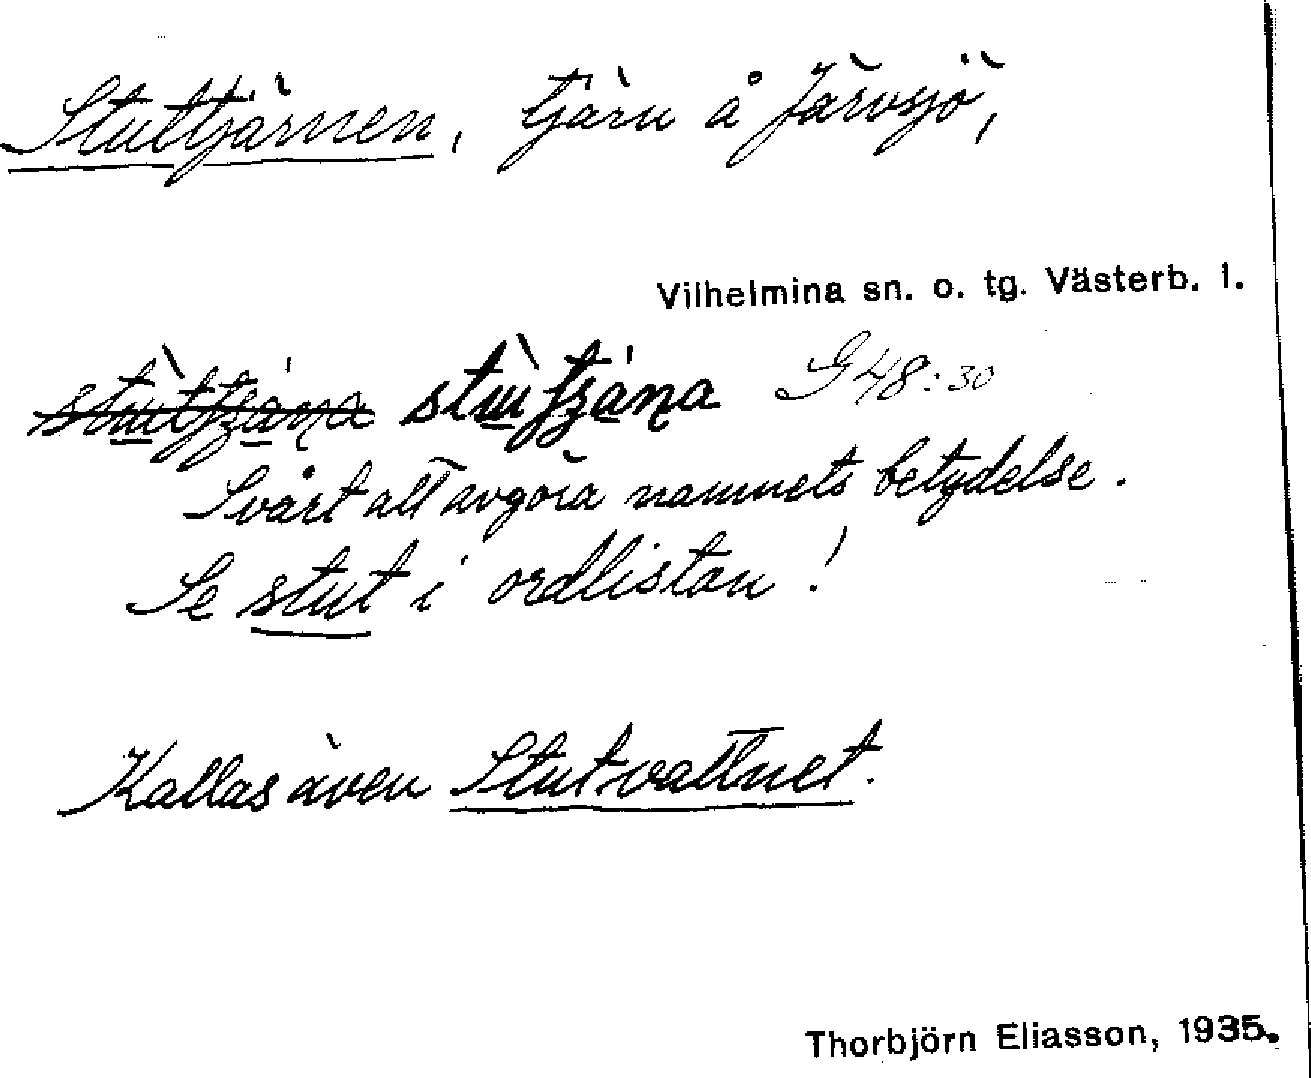 Stuttjärnen, tjärn å Järvsjö,
Vilhelmina sn. o. tg. Västerb. l.
G 48:30
Svårt att avgöra namnets betydelse.
Se stut i ordlistan!
Kallas även Stutvattnet.
Thorbjörn Eliasson, 1935.